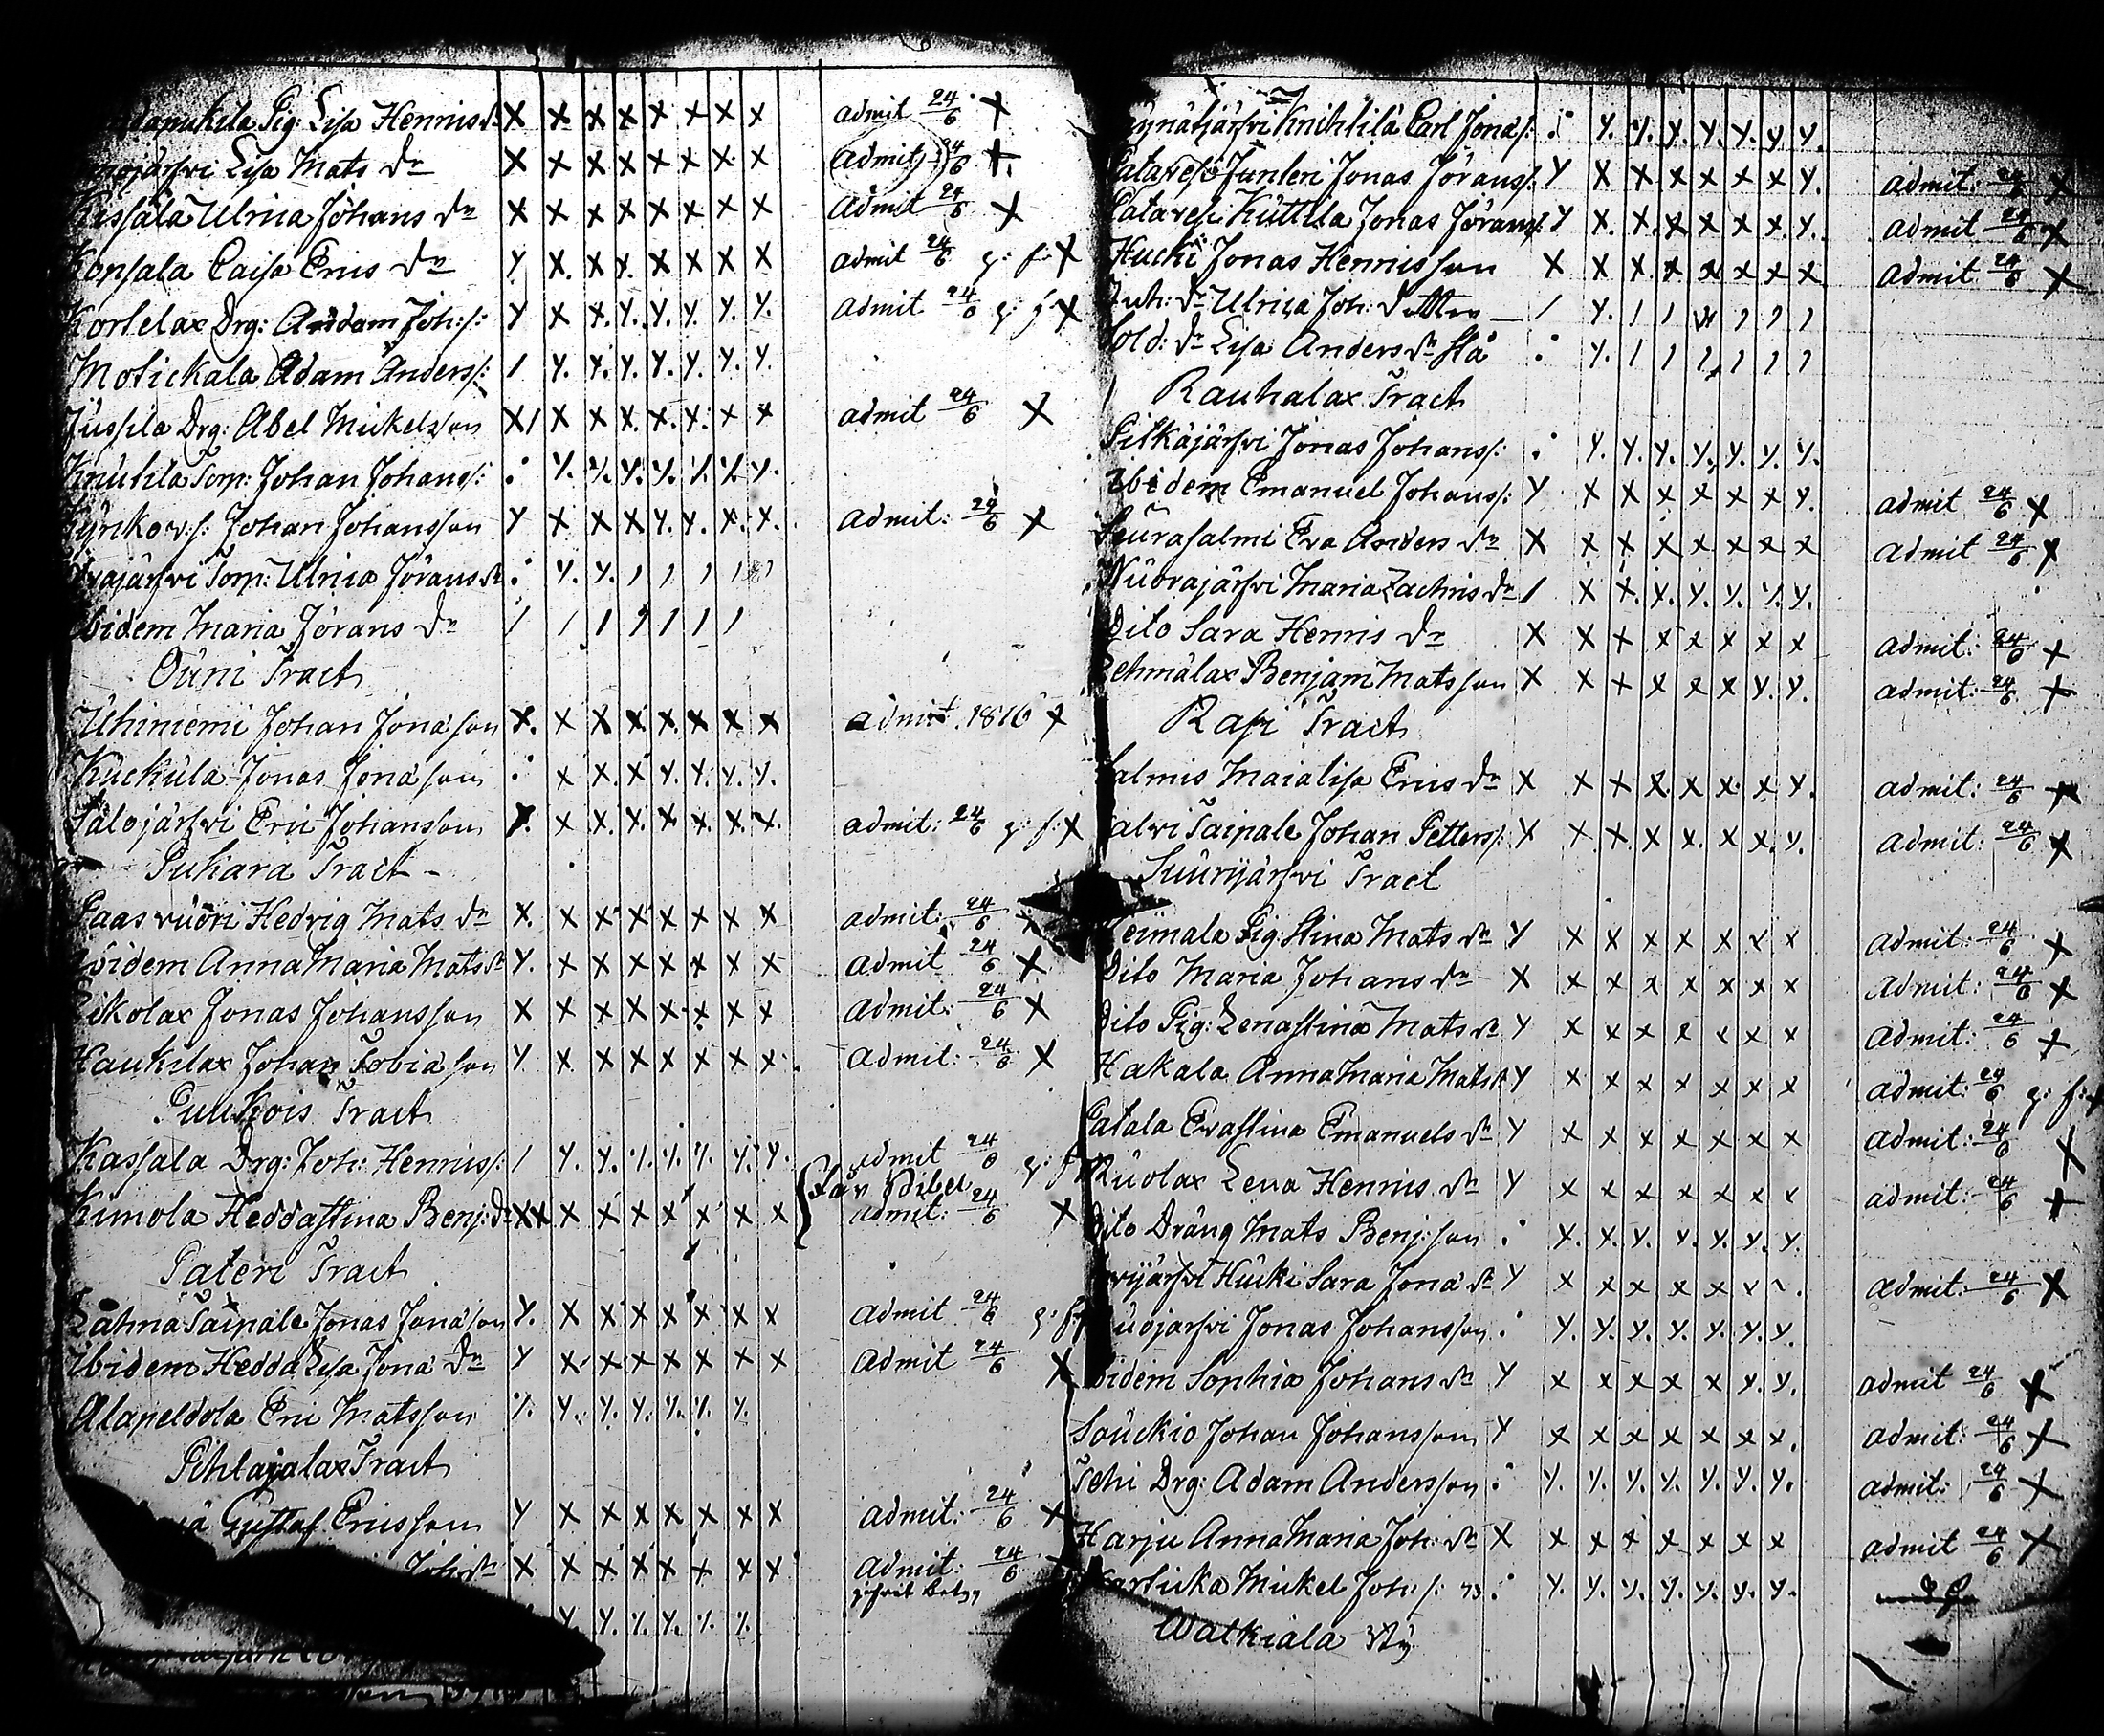 Pig: Lisa Hennisdr X X X X X X X X admit 24/6 X
Lisa Mats dr X X X X X X X X admit 24/6 X
Kissala Ulrica Johans dr X X X X X X X X admit 24/6 X
Konsala Caisa Erics dr Y X. X Y. X X X X admit 24/6 g: f: X
Kortelax Drg: Adam Joh:s: Y X X. Y. Y. Y. Y. Y. admit 24/6 g: f X
Motickala Adam Anders: 1 Y. Y. Y. Y. Y. Y. Y.
Jussila Drg: Abel Mickelsson X1 X X X. X. X. X X admit 24/6 X
Knutila Torp: Johan Johans: . Y. Y. Y. Y. Y. Y. Y.
Johan Johansson Y X X X Y. Y. X. X. admit: 24/6 X
Torp: Ulrica Jörans dr . Y. Y. 1 1 1 1 1
Ibidem Maria Jörans dr 1 1 1 1 1 1 1
Ouni Tract
Uhiniemi Johan Jonasson X. X X X. X. X X X admit 1816 X
Kuckula Jonas Jonasson . X X. X Y. Y. Y. Y.
Salojärfvi Eric Johansson Y. X X. X. X X. X. X. admit: 24/6 g: f: X
Puhara Tract -
Paasvuori Hedvig Mats dr X. X X X X X X X admit: 24/6 X
Ibidem Anna Maria Mats dr Y. X X X X X X X admit 24/6 X
Jonas Johansson X X X X X X X X admit: 24/6 X
Haukilax Johan Tobiasson Y. X X X X X X X. admit: 24/6 X
Puukois Tract
Kassala Drg: Joh: Hennis: 1 Y. Y. Y. Y. Y. Y. Y. admit 24/6 g: f
Kimola Heddastina Benj: dr XX X X X X X X X admit: 24/6 X
Pateri Tract
Lahna Taipale Jonas Jonasson Y. X X X X X X X admit 24/6 g: f
Ibidem Hedda Lisa Jona dr Y X X X X X X X admit 24/6 X
Alapeldola Eric Matsson Y. Y. Y. Y. Y. Y. Y.
Pihlajalax Tract
Gustaf Ericsson Y X X X X X X X admit: 24/6 X
Joh: dr X X X X X X X X admit: 24/6
Y. Y. Y. Y. Y. Y.
Knihtilä Carl Jonas: . Y. Y. Y. Y. Y. Y. Y.
Junteri Jonas Jörans: Y X X X X X X Y. admit: 24/6 X
Kuttila Jonas Jörans: Y X. X. X X X X. Y. admit 24/6 X
Hucki Jonas Hennisson X X X X X X X X admit 24/6 X
Ulrica Joh: Dotter 1 Y. 1 1 1 1 1
Sold: dr Lisa Anders dr . Y. 1 1 1 1 1 1
Rauhalax Tract
Pitkäjärfvi Jonas Johans: . Y. Y. Y. Y. Y. Y. Y.
Ibidem Emanuel Johans: Y X X X X X X Y. admit 24/6 X
Seurasalmi Eva Anders dr X X X X X X X X admit 24/6 X
Nuorajärfvi Maria Zachris dr 1 X X. X. Y. Y. Y. Y.
Dito Sara Hennis dr X X X X X X X X admit: 24/6 X
Benjam Matsson X X X X X X Y. Y. admit: 24/6 X
Rapi Tract
Salmis Maialisa Erics dr X X X X. X X. X Y. admit: 24/6 X
Taipale Johan Petters: X X X X X. X X. Y. admit: 24/6 X
Suurijärfvi Tract
Pig: Stina Mats dr Y X X X X X X X admit: 24/6 X
Dito Maria Johans dr X X X X X X X X admit: 24/6 X
Dito Pig: Lenastina Mats dr Y X X X X X X X admit: 24/6 X
Hakala Anna Maria Mats dr Y X X X X X X X admit: 24/6 g: f: X
Patala Evastina Emanuels dr Y X X X X X X X admit: 24/6 X
Ruolax Lena Hennis dr Y X X X X X X X admit: 24/6 X
Dito Dräng Mats Benj:son . Y. X. Y. Y. Y. Y. Y.
Hucki Sara Jona dr Y X X X X X X X. admit: 24/6 X
Jonas Johansson . Y. Y. Y. Y. Y. Y. Y.
Ibidem Sophia Johans dr Y X X X X X Y. Y. admit 24/6 X
Souckio Johan Johansson Y X X X X X X X. admit: 24/6 X
Tehi Drg: Adam Andersson . Y. Y. Y. Y. Y. Y. Y. admit: 24/6 X
Harju Anna Maria Joh: dr X X X X X X X X admit 24/6 X
Mickel Joh: s: . Y. Y. Y. Y. Y. Y. Y.
Watkiala By